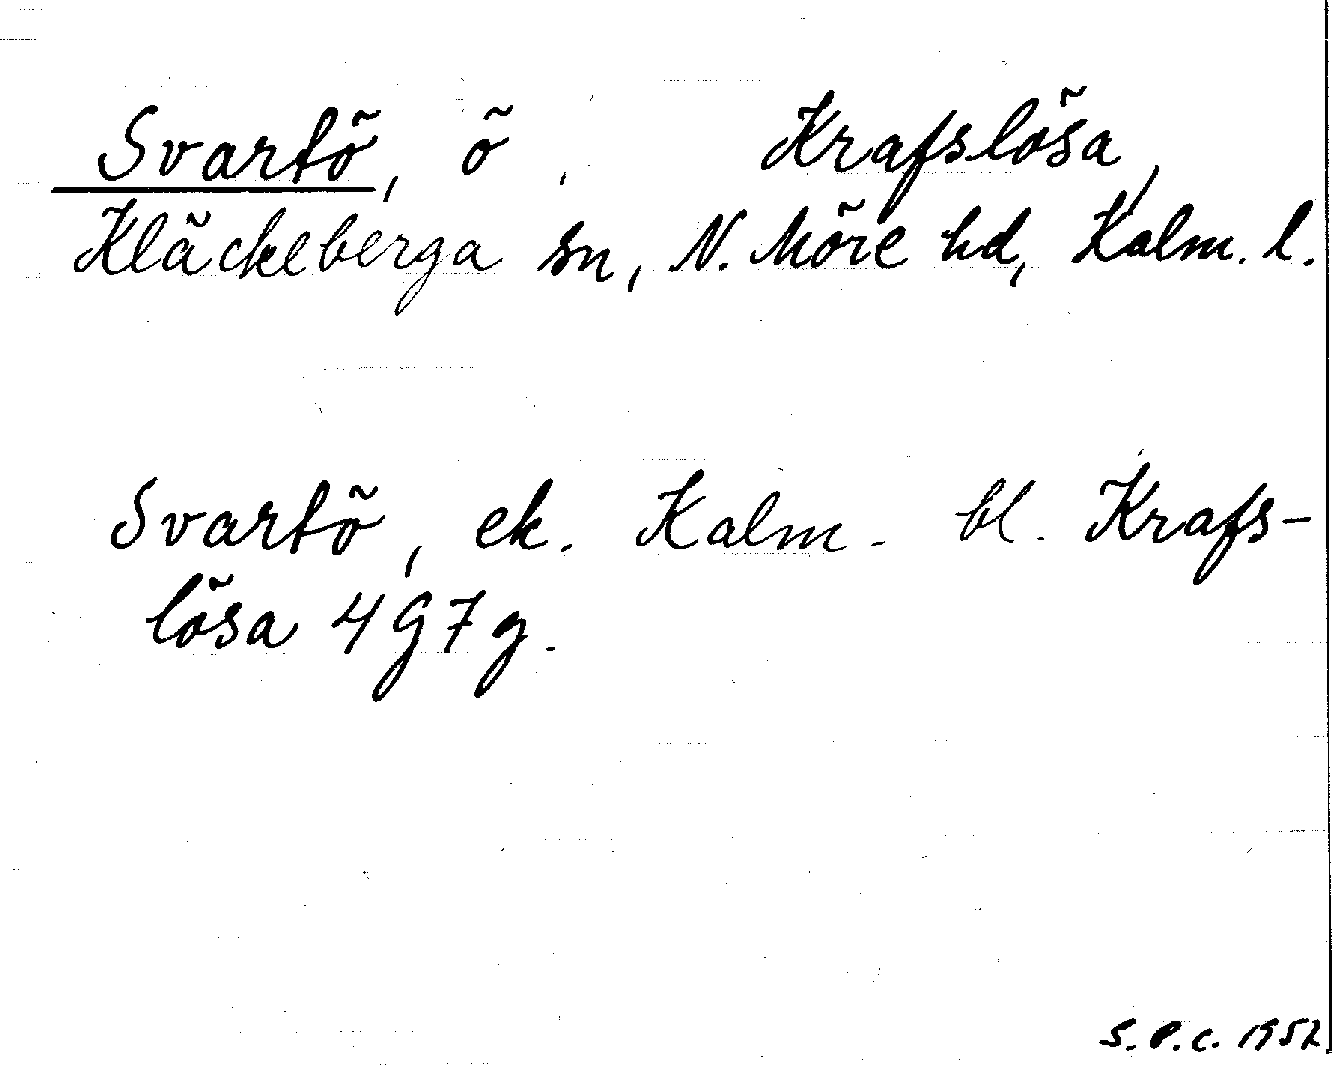 Svartö, ö. Krafslösa,
Kläckeberga sn, N. Möre hd, Kalm. l.
Svartö, ek. Kalm. bl. Krafs-
lösa 4 G 7 g.
S.P.C. 1952